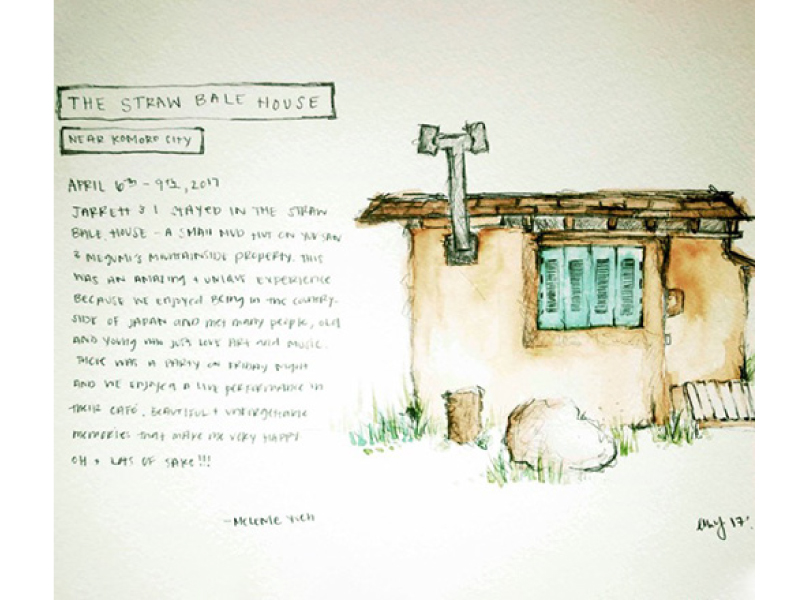 THE STRAW BALE HOUSE
NEAR KOMORO CITY
APRIL 6TH - 9TH, 2017
JARRETT & I STAYED IN THE STRAW
BALE HOUSE - A SMALL MUD HUT ON
& MEGUMI'S MOUNTAINSIDE PROPERTY. THIS
WAS AN AMAZING + UNIQUE EXPERIENCE
BECAUSE WE ENJOYED BEING IN THE COUNTRY-
SIDE OF JAPAN AND MET MANY PEOPLE, OLD
AND YOUNG WHO JUST LOVE ART AND MUSIC.
THERE WAS A PARTY ON FRIDAY NIGHT
AND WE ENJOYED A LIVE PERFORMANCE IN
THEIR CAFÉ. BEAUTIFUL + UNFORGETTABLE
MEMORIES THAT MAKE ME VERY HAPPY.
OH + LOTS OF SAKE!!!
- MELENIE
17'